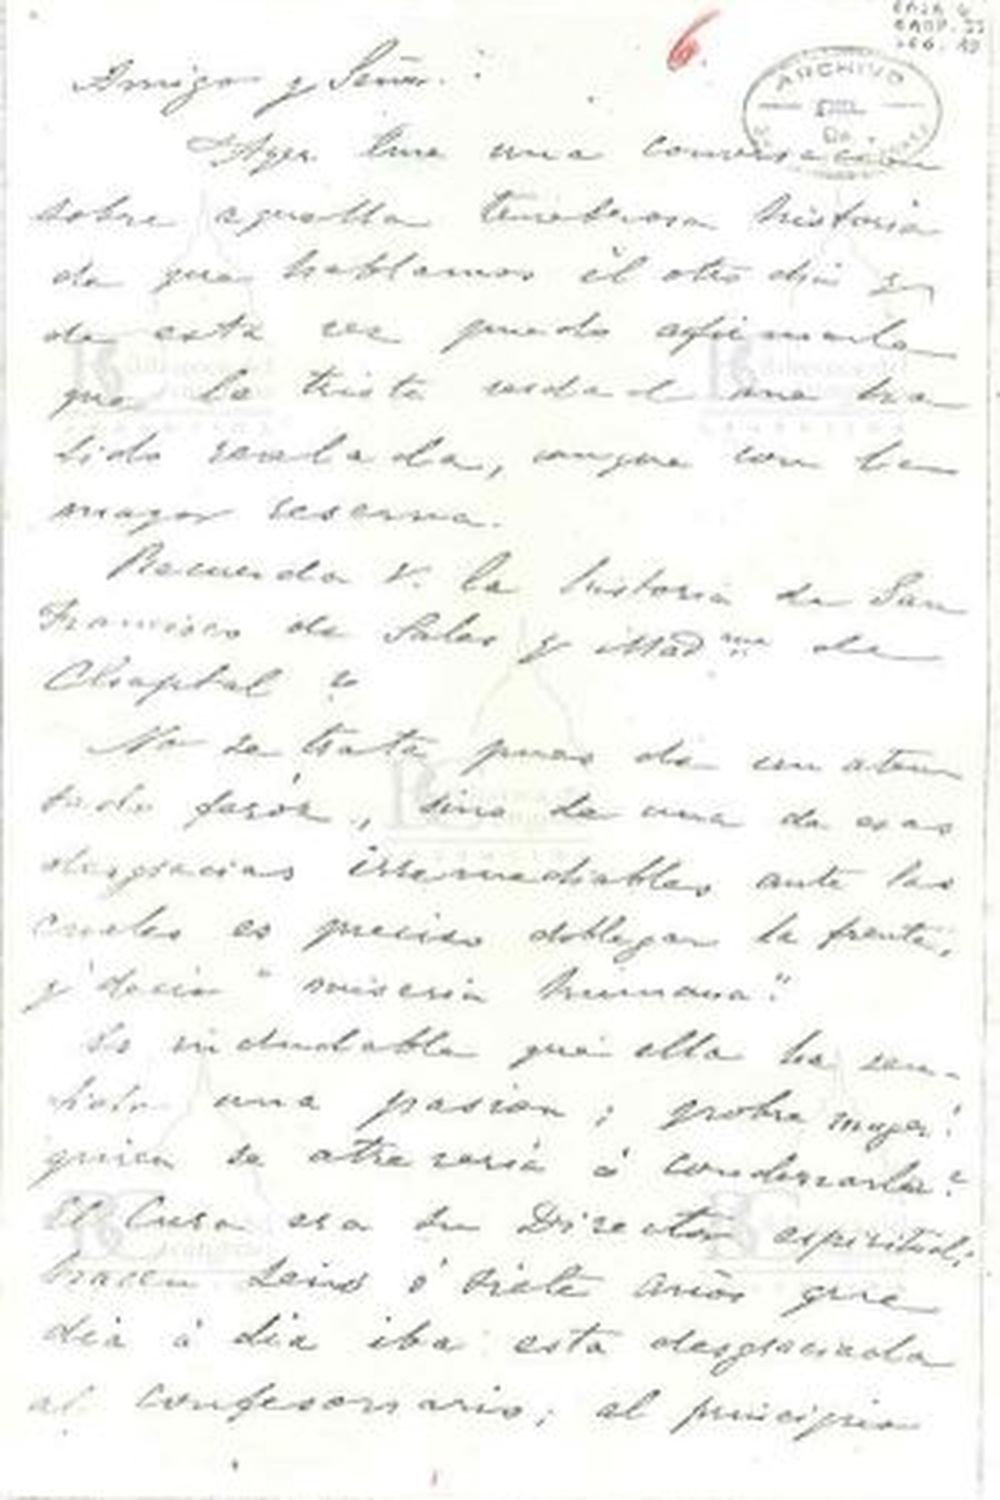 6.
Amigo y Señor:
Ayer tuve una conversacion
sobre aquella tenebrosa historia
de que hablamos el otro dia y
de esta vez puedo afirmarle
que la triste verdad me ha
sido revelada, aunque con la
mayor reserva.
Recuerda V. la historia de San
Francisco de Sales y Mad.me de
Chaptal?
No se trata pues de un aten
tado feróz, sino de una de esas
desgracias irremediables ante las
cuales es preciso doblegar la frente,
y decir "miseria humana."
Es indudable que ella ha sen-
tido una pasion; pobre muger!
quien se atreveria á condenarla?
El Cura era su Director espiritual;
hacen seis ó siete años que
dia á dia iba esta desgraciada
al confesonario; al principio
ARCHIVO